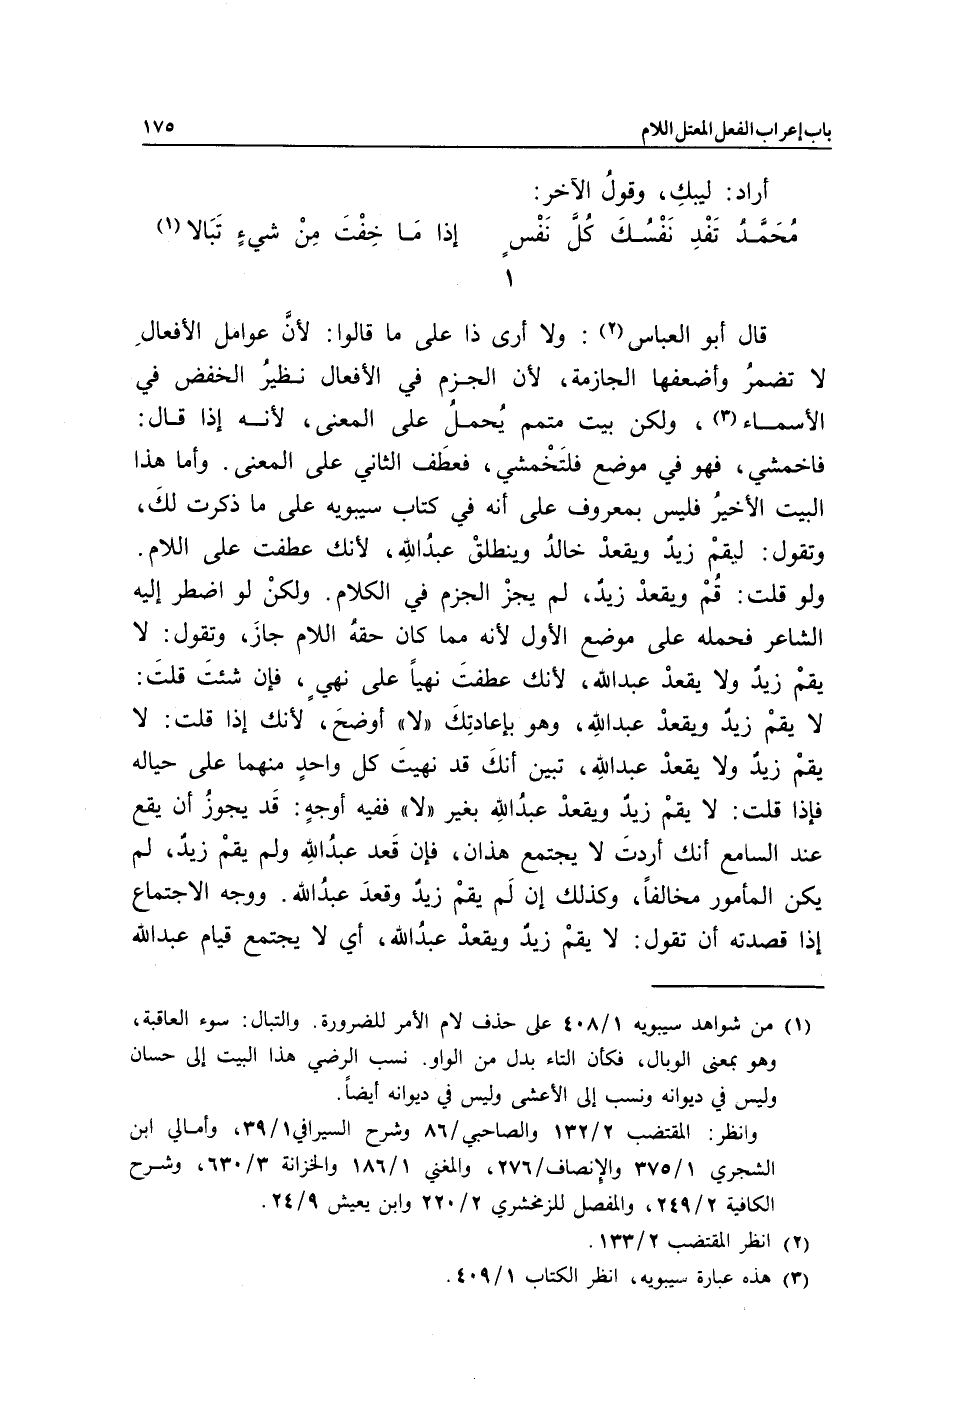 باب إعراب الفعل المعتل اللام ١٧٥
أراد: ليبكِ، وقولُ الآخر:
مُحَمَّـدُ تَفْدِ نَفْسُـكَ كُلَّ نَفْسٍ إذا مَـا خِفْتَ مِنْ شيءٍ تَبَالا (١)
١
قال أبو العباس (٢) : ولا أرى ذا على ما قالوا: لأنَّ عوامل الأفعالِ
لا تضمرُ وأضعفها الجازمة، لأن الجـزم في الأفعال نـظيرُ الخفض في
الأسمـاء (٣) ، ولكن بيت متمم يُحمـلُ على المعنى، لأنـه إذا قـال:
فاخمشي، فهو في موضع فلتَخْمشي، فعطَف الثاني على المعنى. وأما هذا
البيت الأخيرُ فليس بمعروف على أنه في كتاب سيبويه على ما ذكرت لكَ،
وتقول: ليقمْ زيدٌ ويقعدْ خالدُ وينطلقْ عبدُاللهِ، لأنك عطفت على اللام.
ولو قلت: قُمْ ويقعدْ زيدٌ، لم يجزْ الجزم في الكلام. ولكنْ لو اضطر إليه
الشاعر فحمله على موضع الأول لأنه مما كان حقهُ اللام جازَ، وتقول: لا
يقمْ زيدٌ ولا يقعدْ عبدالله، لأنك عطفتَ نهياً على نهيٍ، فإن شئتَ قلتَ:
لا يقمْ زيدٌ ويقعدْ عبداللهِ، وهو بإعادتِكَ «لا» أوضحَ، لأنك إذا قلت: لا
يقمْ زيدٌ ولا يقعدْ عبداللهِ، تبين أنكَ قد نهيتَ كل واحدٍ منهما على حياله
فإذا قلت: لا يقمْ زيدٌ ويقعدْ عبدُاللهِ بغير «لا» ففيه أوجهٍ: قَد يجوزُ أن يقع
عند السامع أنك أردتَ لا يجتمع هذان، فإن قَعد عبدُالله ولم يقمْ زيدٌ، لم
يكن المأمور مخالفاً، وكذلك إن لَم يقمْ زيدٌ وقعدَ عبدُالله. ووجه الاجتماع
إذا قصدته أن تقول: لا يقمْ زيدٌ ويقعدْ عبدُالله، أي لا يجتمع قيام عبدالله
(١) من شواهد سيبويه ٤٠٨/١ على حذف لام الأمر للضرورة. والتبال: سوء العاقبة،
وهو بمعنى الوبال، فكأن التاء بدل من الواو. نسب الرضي هذا البيت إلى حسان
وليس في ديوانه ونسب إلى الأعشى وليس في ديوانه أيضاً.
وانظر: المقتضب ١٣٢/٢ والصاحبي/٨٦ وشرح السيرافي٣٩/١، وأمـالي ابن
الشجري ٣٧٥/١ والإنصاف/٢٧٦، والمغني ١٨٦/١ والخزانة ٦٣٠/٣، وشـرح
الكافية ٢٤٩/٢، والمفصل للزمخشري ٢٢٠/٢ وابن يعيش ٢٤/٩.
(٢) انظر المقتضب ١٣٣/٢.
(٣) هذه عبارة سيبويه، انظر الكتاب ٤٠٩/١.